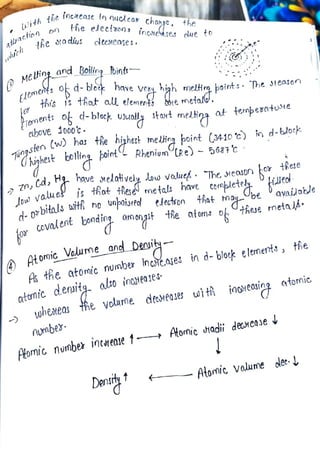 • With the increase in nuclear charge, the
attraction on the electrons increases due to
which the radius decreases.
③ Melting and Boiling Points—
Elements of d-block have very high melting points. The reason
for this is that all elements are metals.
Elements of d-block usually start melting at temperature
above 1000°C.
Tungsten (W) has the highest melting point (3410°C) in d-block
highest boiling point - Rhenium (Re) - 5687°C
→ Zn, Cd, Hg have relatively low values. The reason for these
low values is that these metals have completely filled
d-orbitals with no unpaired electron that may be available
for covalent bonding amongst the atoms of these metals.
④ Atomic Volume and Density—
As the atomic number increases in d-block elements, the
atomic density also increases.
→ whereas the volume decreases with increasing atomic
number.
Atomic number increase ↑ → Atomic radii decrease ↓
↓
Density ↑ ← Atomic volume dec. ↓